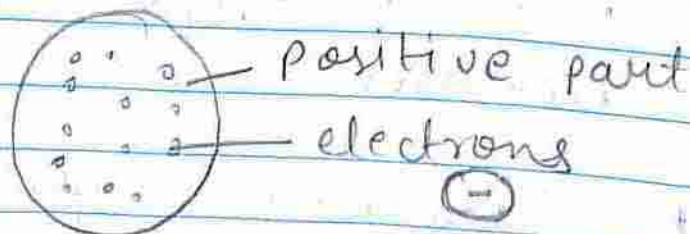 Positive part
electrons
-